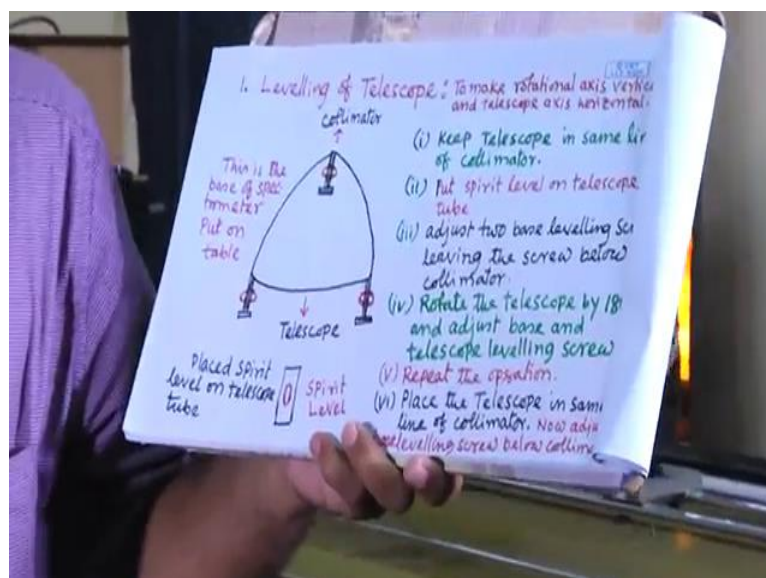 1. Levelling of Telescope: To make rotational axis
and telescope axis horizontal.
collimator
This is the
base of spec-
trometer
Put on
table
Telescope
Placed spirit
level on telescope
tube
Spirit
Level
(i) Keep Telescope in same
of collimator.
(ii) Put spirit level on telescope
tube
(iii) adjust two base levelling
leaving the screw below
collimator.
(iv) Rotate the telescope by 18
and adjust base and
telescope levelling screw
(v) Repeat the opsation.
(vi) Place the Telescope in
line of collimator. Now
levelling screw below